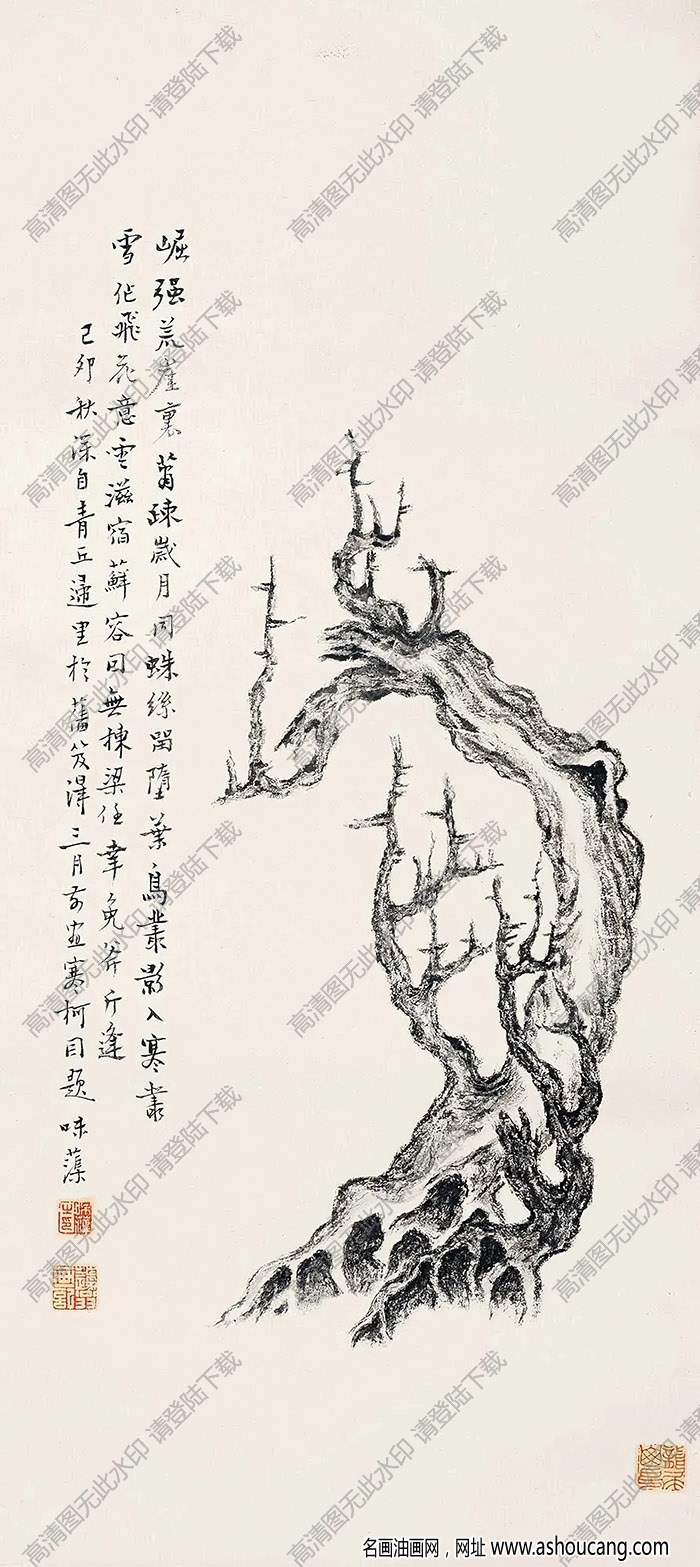 崛强荒崖裏蕭疎歲月同蛛絲罥墮葉鳥影入寒叢
雪作飛花意雲滋宿蘚容回無棟梁任幸免斧斤逢
己卯秋深自青丘還里於舊笈得三月前畫寒柯因題 味藻
高清图无此水印 请登陆下载
名画油画网，网址 www.ashoucang.com